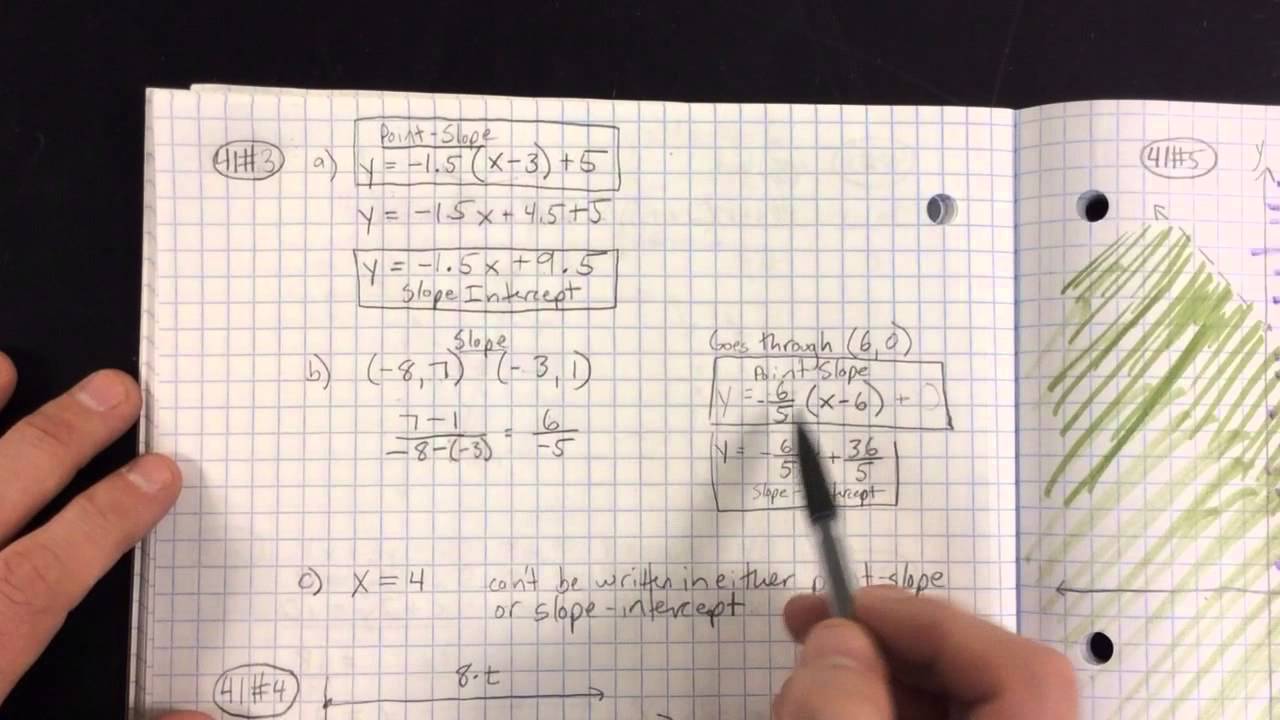 41#3 a) Point-Slope
y = -1.5 (x-3) +5
y = -1.5x + 4.5+5
y = -1.5x+9.5
Slope Intercept
Slope
b) (-8,7) (-3,1)
7-1 / -8-(-3) = 6 / -5
Goes through (6,0)
Point Slope
y = -6/5 (x-6) +
y = -6/5 + 36/5
Slope-
c) x = 4 can't be written in either -slope
or slope-intercept
41#4 8·t
41#5 y